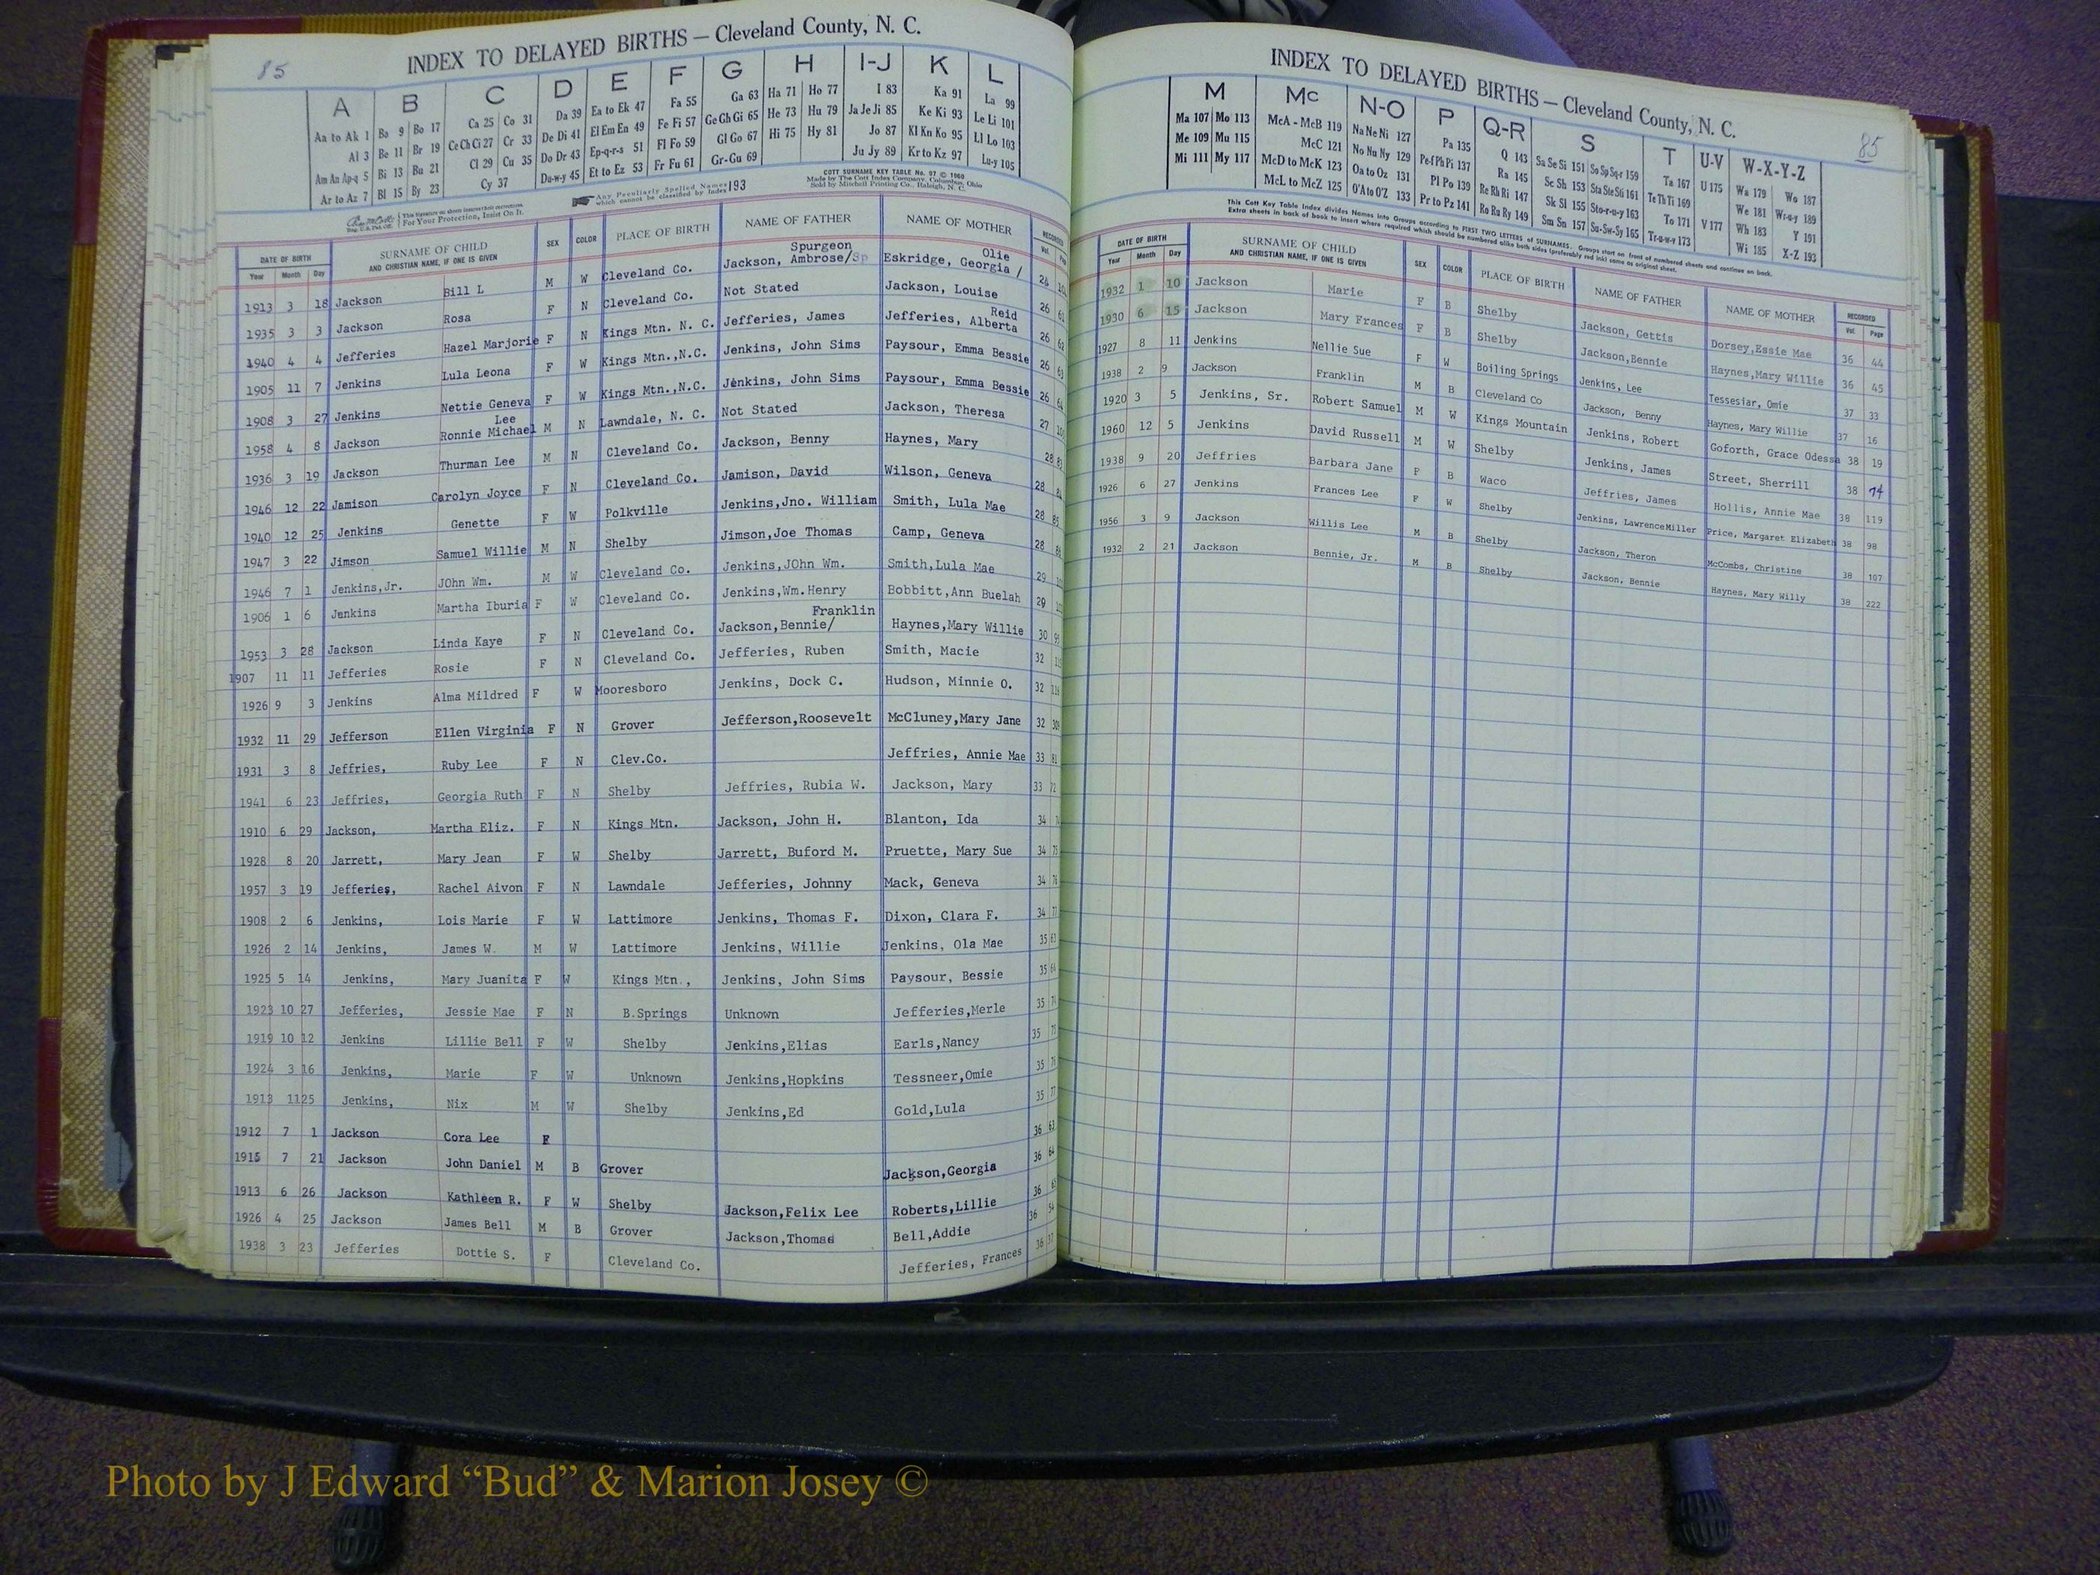 85
INDEX TO DELAYED BIRTHS — Cleveland County, N. C.
A B C D E F G H I-J K L
Aa to Ak 1 Ba 9 Bo 17 Ca 25 Co 31 Da 39 Ea to Ek 47 Fa 55 Ga 63 Ha 71 Ho 77 I 83 Ka 91 La 99
Al 3 Be 11 Br 19 Ce Ch Ci 27 Cr 33 De Di 41 El Em En 49 Fe Fi 57 Ge Gh Gi 65 He 73 Hu 79 Ja Je Ji 85 Ke Ki 93 Le Li 101
Am An Ap-q 5 Bi 13 Bu 21 Cl 29 Cu 35 Do Dr 43 Ep-q-r-s 51 Fl Fo 59 Gl Go 67 Hi 75 Hy 81 Jo 87 Kl Kn Ko 95 Ll Lo 103
Ar to Az 7 Bl 15 By 23 Cy 37 Du-w-y 45 Et to Ez 53 Fr Fu 61 Gr-Gu 69 Ju Jy 89 Kr to Kz 97 Lu-y 105
For Your Protection, Insist On It.
Any Peculiarly Spelled Names which cannot be classified by Index 193
COTT SURNAME KEY TABLE No. 97 © 1960
Made by The Cott Index Company, Columbus, Ohio
Sold by Mitchell Printing Co., Raleigh, N. C.
DATE OF BIRTH SURNAME OF CHILD AND CHRISTIAN NAME, IF ONE IS GIVEN SEX COLOR PLACE OF BIRTH NAME OF FATHER NAME OF MOTHER RECORDED
Year Month Day Vol.
1913 3 18 Jackson Bill L M W Cleveland Co. Jackson, Ambrose/ Spurgeon Eskridge, Georgia / Olie 26
1935 3 3 Jackson Rosa F N Cleveland Co. Not Stated Jackson, Louise 26
1940 4 4 Jefferies Hazel Marjorie F N Kings Mtn. N. C. Jefferies, James Jefferies, Alberta Reid 26
1905 11 7 Jenkins Lula Leona F W Kings Mtn.,N.C. Jenkins, John Sims Paysour, Emma Bessie 26
1908 3 27 Jenkins Nettie Geneva F W Kings Mtn.,N.C. Jenkins, John Sims Paysour, Emma Bessie 26
1958 4 8 Jackson Ronnie Michael Lee M N Lawndale, N. C. Not Stated Jackson, Theresa 27
1936 3 19 Jackson Thurman Lee M N Cleveland Co. Jackson, Benny Haynes, Mary 28
1946 12 22 Jamison Carolyn Joyce F N Cleveland Co. Jamison, David Wilson, Geneva 28
1940 12 25 Jenkins Genette F W Polkville Jenkins,Jno. William Smith, Lula Mae 28
1947 3 22 Jimson Samuel Willie M N Shelby Jimson,Joe Thomas Camp, Geneva 28
1946 7 1 Jenkins,Jr. JOhn Wm. M W Cleveland Co. Jenkins,JOhn Wm. Smith,Lula Mae 29
1906 1 6 Jenkins Martha Iburia F W Cleveland Co. Jenkins,Wm.Henry Bobbitt,Ann Buelah 29
1953 3 28 Jackson Linda Kaye F N Cleveland Co. Jackson,Bennie/ Franklin Haynes,Mary Willie 30
1907 11 11 Jefferies Rosie F N Cleveland Co. Jefferies, Ruben Smith, Macie 32
1926 9 3 Jenkins Alma Mildred F W Mooresboro Jenkins, Dock C. Hudson, Minnie O. 32
1932 11 29 Jefferson Ellen Virginia F N Grover Jefferson,Roosevelt McCluney,Mary Jane 32
1931 3 8 Jeffries, Ruby Lee F N Clev.Co. Jeffries, Annie Mae 33
1941 6 23 Jeffries, Georgia Ruth F N Shelby Jeffries, Rubia W. Jackson, Mary 33
1910 6 29 Jackson, Martha Eliz. F N Kings Mtn. Jackson, John H. Blanton, Ida 34
1928 8 20 Jarrett, Mary Jean F W Shelby Jarrett, Buford M. Pruette, Mary Sue 34
1957 3 19 Jefferies, Rachel Aivon F N Lawndale Jefferies, Johnny Mack, Geneva 34
1908 2 6 Jenkins, Lois Marie F W Lattimore Jenkins, Thomas F. Dixon, Clara F. 34
1926 2 14 Jenkins, James W. M W Lattimore Jenkins, Willie Jenkins, Ola Mae 35
1925 5 14 Jenkins, Mary Juanita F W Kings Mtn., Jenkins, John Sims Paysour, Bessie 35
1923 10 27 Jefferies, Jessie Mae F N B.Springs Unknown Jefferies,Merle 35
1919 10 12 Jenkins Lillie Bell F W Shelby Jenkins,Elias Earls,Nancy 35
1924 3 16 Jenkins, Marie F W Unknown Jenkins,Hopkins Tessneer,Omie 35
1913 11 25 Jenkins, Nix M W Shelby Jenkins,Ed Gold,Lula 35
1912 7 1 Jackson Cora Lee F 36
1915 7 21 Jackson John Daniel M B Grover Jackson,Georgia 36
1913 6 26 Jackson Kathleen R. F W Shelby Jackson,Felix Lee Roberts,Lillie 36
1926 4 25 Jackson James Bell M B Grover Jackson,Thomas Bell,Addie 36
1938 3 23 Jefferies Dottie S. F Cleveland Co. Jefferies, Frances 36
INDEX TO DELAYED BIRTHS — Cleveland County, N. C.
85
M Mc N-O P Q-R S T U-V W-X-Y-Z
Ma 107 Mo 113 McA - McB 119 Na Ne Ni 127 Pa 135 Q 143 Sa Se Si 151 So Sp Sq-r 159 Ta 167 U 175 Wa 179 Wo 187
Me 109 Mu 115 McC 121 No Nu Ny 129 Pe-f Ph Pi 137 Ra 145 Sc Sh 153 Sta Ste Sti 161 Te Th Ti 169 We 181 Wr-u-y 189
Mi 111 My 117 McD to McK 123 Oa to Oz 131 Pl Po 139 Re Rh Ri 147 Sk Sl 155 Sto-r-u-y 163 To 171 V 177 Wh 183 Y 191
McL to McZ 125 O'A to O'Z 133 Pr to Pz 141 Ro Ru Ry 149 Sm Sn 157 Su-Sw-Sy 165 Tr-u-w-y 173 Wi 185 X-Z 193
This Cott Key Table Index divides Names into Groups according to FIRST TWO LETTERS of SURNAMES. Groups start on front of numbered sheets and continue on back.
Extra sheets in back of book to insert where required which should be numbered alike both sides (preferably red ink) same as original sheet.
DATE OF BIRTH SURNAME OF CHILD AND CHRISTIAN NAME, IF ONE IS GIVEN SEX COLOR PLACE OF BIRTH NAME OF FATHER NAME OF MOTHER RECORDED
Year Month Day Vol. Page
1932 1 10 Jackson Marie F B Shelby Jackson, Gettis Dorsey,Essie Mae 36 44
1930 6 15 Jackson Mary Frances F B Shelby Jackson,Bennie Haynes,Mary Willie 36 45
1927 8 11 Jenkins Nellie Sue F W Boiling Springs Jenkins, Lee Tessesiar, Omie 37 33
1938 2 9 Jackson Franklin M B Cleveland Co Jackson, Benny Haynes, Mary Willie 37 16
1920 3 5 Jenkins, Sr. Robert Samuel M W Kings Mountain Jenkins, Robert Goforth, Grace Odessa 38 19
1960 12 5 Jenkins David Russell M W Shelby Jenkins, James Street, Sherrill 38 74
1938 9 20 Jeffries Barbara Jane F B Waco Jeffries, James Hollis, Annie Mae 38 119
1926 6 27 Jenkins Frances Lee F W Shelby Jenkins, LawrenceMiller Price, Margaret Elizabeth 38 98
1956 3 9 Jackson Willis Lee M B Shelby Jackson, Theron McCombs, Christine 38 107
1932 2 21 Jackson Bennie, Jr. M B Shelby Jackson, Bennie Haynes, Mary Willy 38 222
Photo by J Edward “Bud” & Marion Josey ©